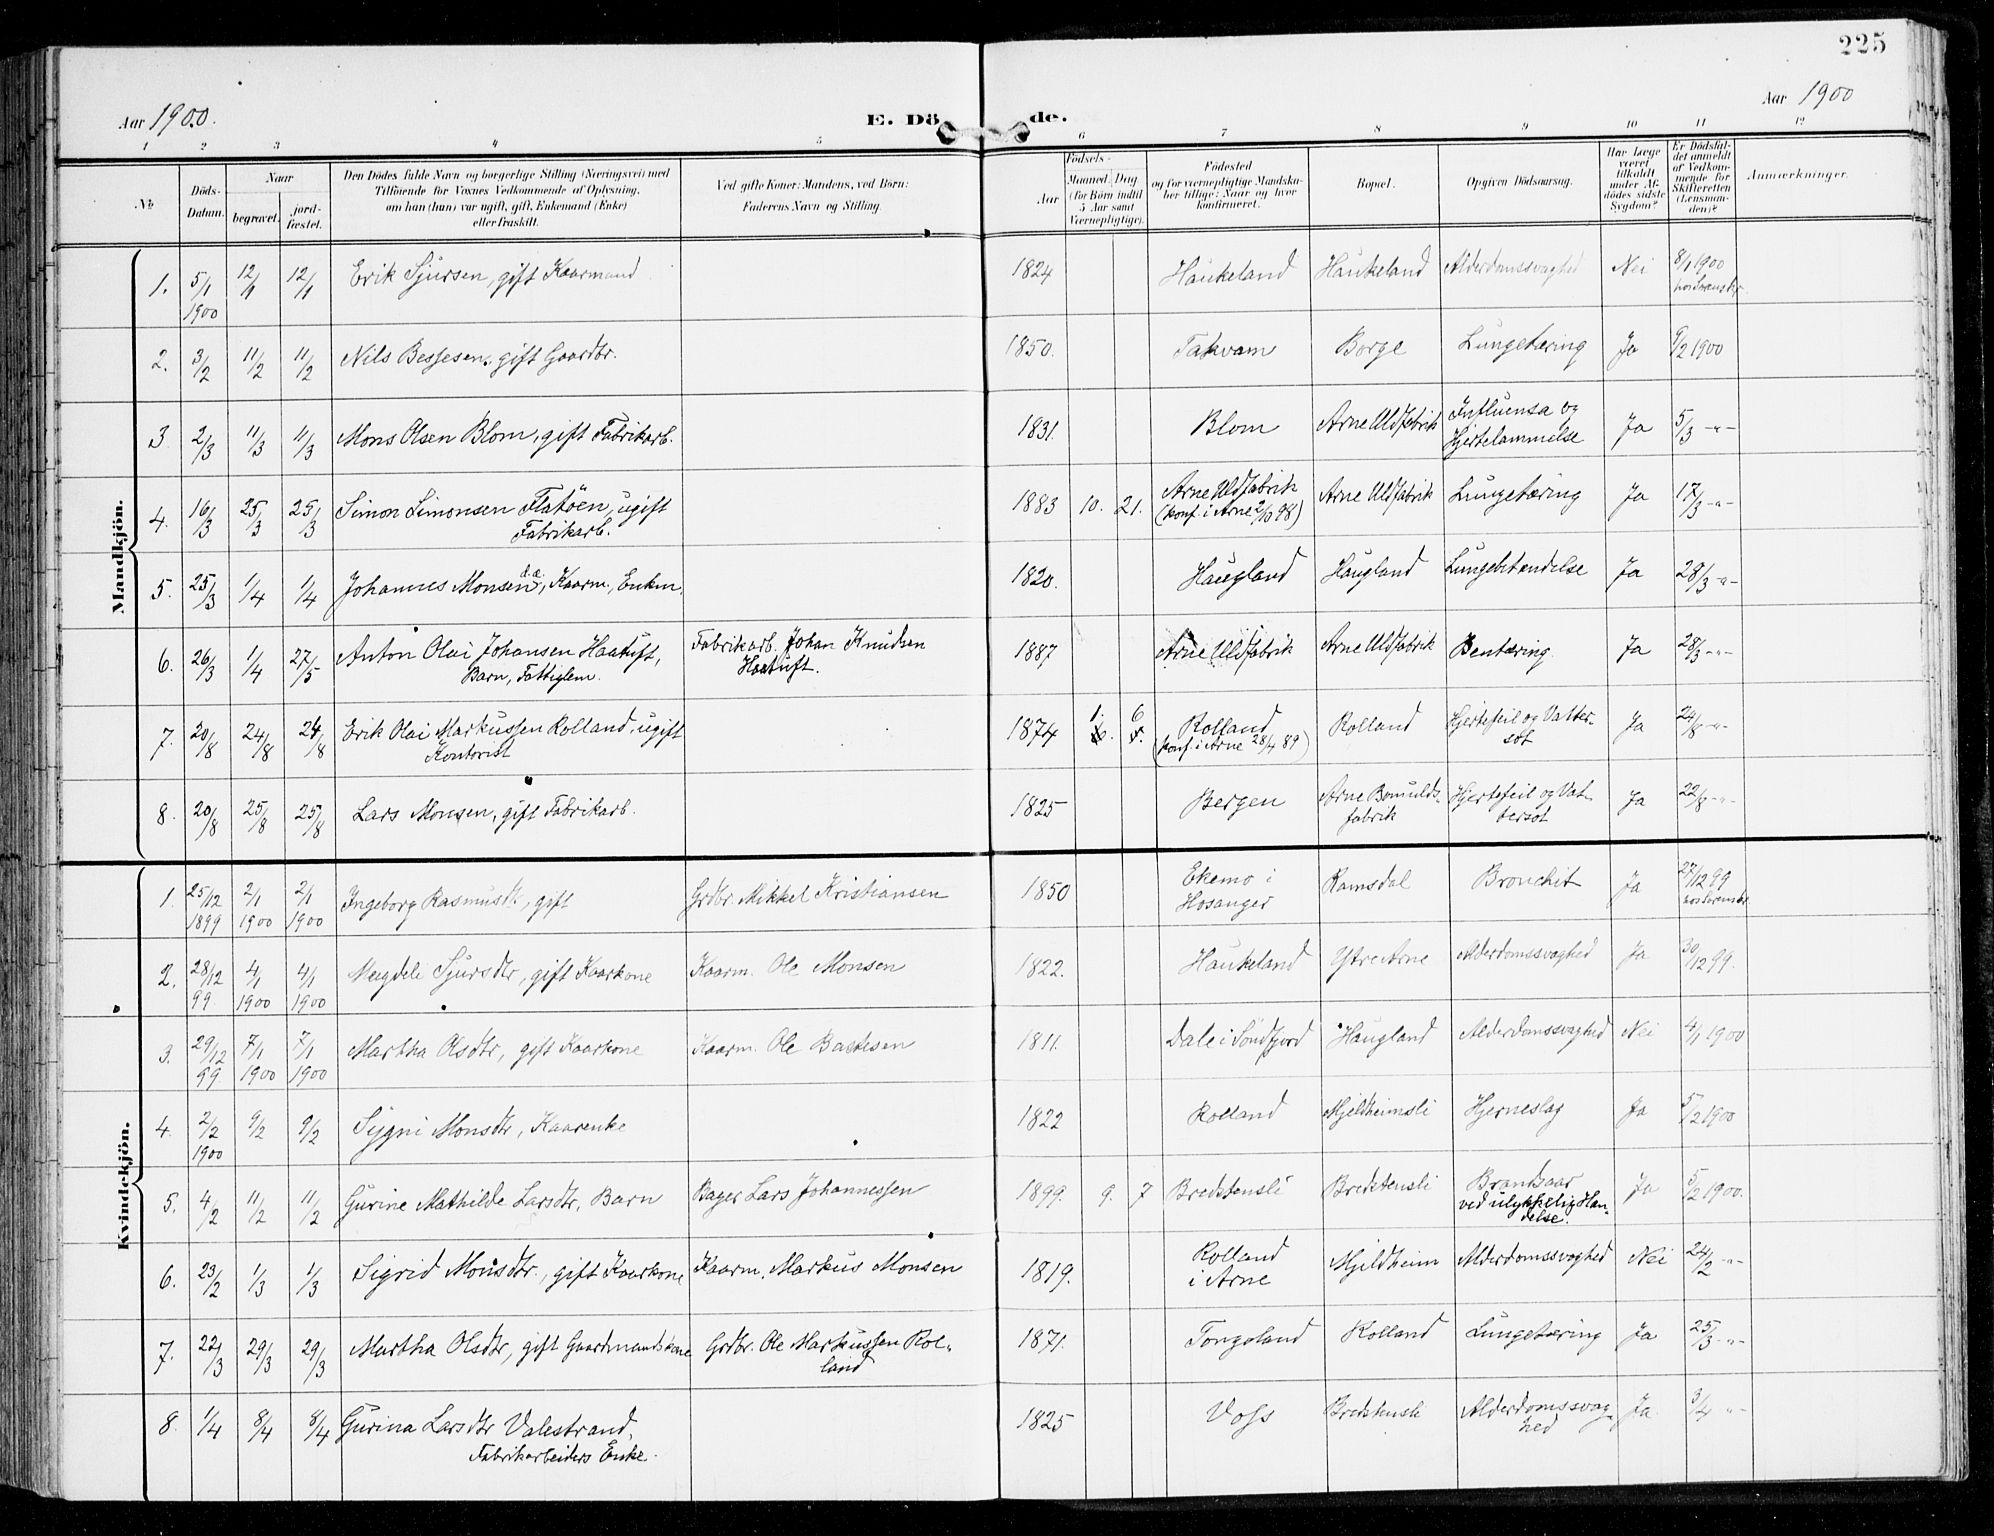 225
Aar 1900.
E. Döde.
Aar 1900
1 2 3 4 5 6 7 8 9 10 11 12
No
Döds-Datum.
Naar
begravet.
jordfæstet.
Den Dödes fulde Navn og borgerlige Stilling (Næringsvei) med
Tilföiende for Voxnes Vedkommende af Oplysning,
om han (hun) var ugift, gift, Enkemand (Enke)
eller fraskilt.
Ved gifte Koner: Mandens, ved Börn:
Faderens Navn og Stilling.
Födsels-
Aar
Maaned. Dag
(for Börn indtil
5 Aar samt
Værnepligtige).
Födested
og for værnepligtige Mandskaber tillige: Naar og hvor
konfirmeret.
Bopæl.
Opgiven Dödsaarsag.
Har Læge
været
tilkaldt
under Afdödes sidste
Sygdom?
Er Dödsfaldet anmeldt
af Vedkommende for
Skifteretten
(Lensmanden)?
Anmærkninger.
Mandkjön.
1. 5/1 1900 12/1 12/1 Erik Sjursen, gift Kaarmand 1824 Haukeland Haukeland Alderdomssvaghed Nei 8/1 1900
2. 3/2 11/2 11/2 Nils Bessesen, gift Gaardbr. 1850. Takvam Borge Lungetæring Ja 9/2 1900
3 2/3 11/3 11/3 Mons Olsen Blom, gift Fabrikarb. 1831. Blom Arne Uldfabrik Influensa og Hjertelammelse Ja 5/3 -"-
4. 16/3 25/3 25/3 Simon Simonsen Flatöen, ugift Fabrikarb. 1883 10. 21. Arne Uldfabrik (konf. i Arne 2/10 98) Arne Uldfabrik Lungetæring Ja 17/3 -"-
5. 25/3 1/4 1/4 Johannes Monsen d.æ., Kaarm., Enkm. 1820. Haugland Haugland Lungebetændelse Ja 28/3 -"-
6. 26/3 1/4 27/5 Anton Olai Johansen Haatuft, Barn, Fattiglem. Fabrikarb. Johan Knudsen Haatuft. 1887 Arne Uldfabrik Arne Uldfabrik Bentæring. Ja 28/3 -"-
7. 20/8 24/8 24/8 Erik Olai Markussen Rolland, ugift Kontorist 1874 1. 6 Rolland (konf. i Arne 28/4 89) Rolland Hjertefeil og Vattersot Ja 24/8 -"-
8. 20/8 25/8 25/8 Lars Monsen, gift Fabrikarb. 1825 Bergen Arne Bomuldsfabrik Hjertefeil og Vattersot Ja 22/8 -"-
Kvindekjön.
1. 25/12 1899 2/1 1900 2/1 1900 Ingeborg Rasmusdt., gift Grdbr. Mikkel Kristiansen 1850 Ekemo i Hosanger Ramsdal Bronchit Ja 27/12 99
2. 28/12 99 4/1 1900 4/1 1900 Magdeli Sjursdtr, gift Kaarkone Kaarm. Ole Monsen 1822. Haukeland Ytre Arne Alderdomssvaghed Ja 30/12 99.
3. 29/12 99 7/1 1900 7/1 1900 Martha Olsdtr, gift Kaarkone Kaarm. Ole Bastesen 1811. Dale i Söndfjord Haugland Alderdomssvaghed Nei 4/1 1900
4. 2/2 1900 9/2 9/2 Sygni Monsdtr, Kaarenke 1822 Rolland Mjeldheimsli Hjerneslag Ja 5/2 1900
5. 4/2 11/2 11/2 Gurine Mathilde Larsdtr, Barn Bager Lars Johannessen 1899. 9. 7 Bredstensli Bredstensli Brandsaar ved ulykkelig Handelse. Ja 5/2 1900.
6. 23/2 1/3 1/3 Sigrid Monsdtr., gift Kaarkone Kaarm. Markus Monsen 1819. Rolland i Arne Mjeldheim Alderdomssvaghed Nei 24/2 -"-
7. 22/3 29/3 29/3 Martha Olsdtr, gift Gaardmandskone Grdbr. Ole Markussen Rolland 1871. Tongoland Rolland Lungetæring Ja 25/3 -"-
8. 1/4 8/4 8/4 Gurina Larsdtr Valestrand, Fabrikarbeiders Enke. 1825 Voss Bredstensli Alderdomssvaghed Ja. 3/4 "-